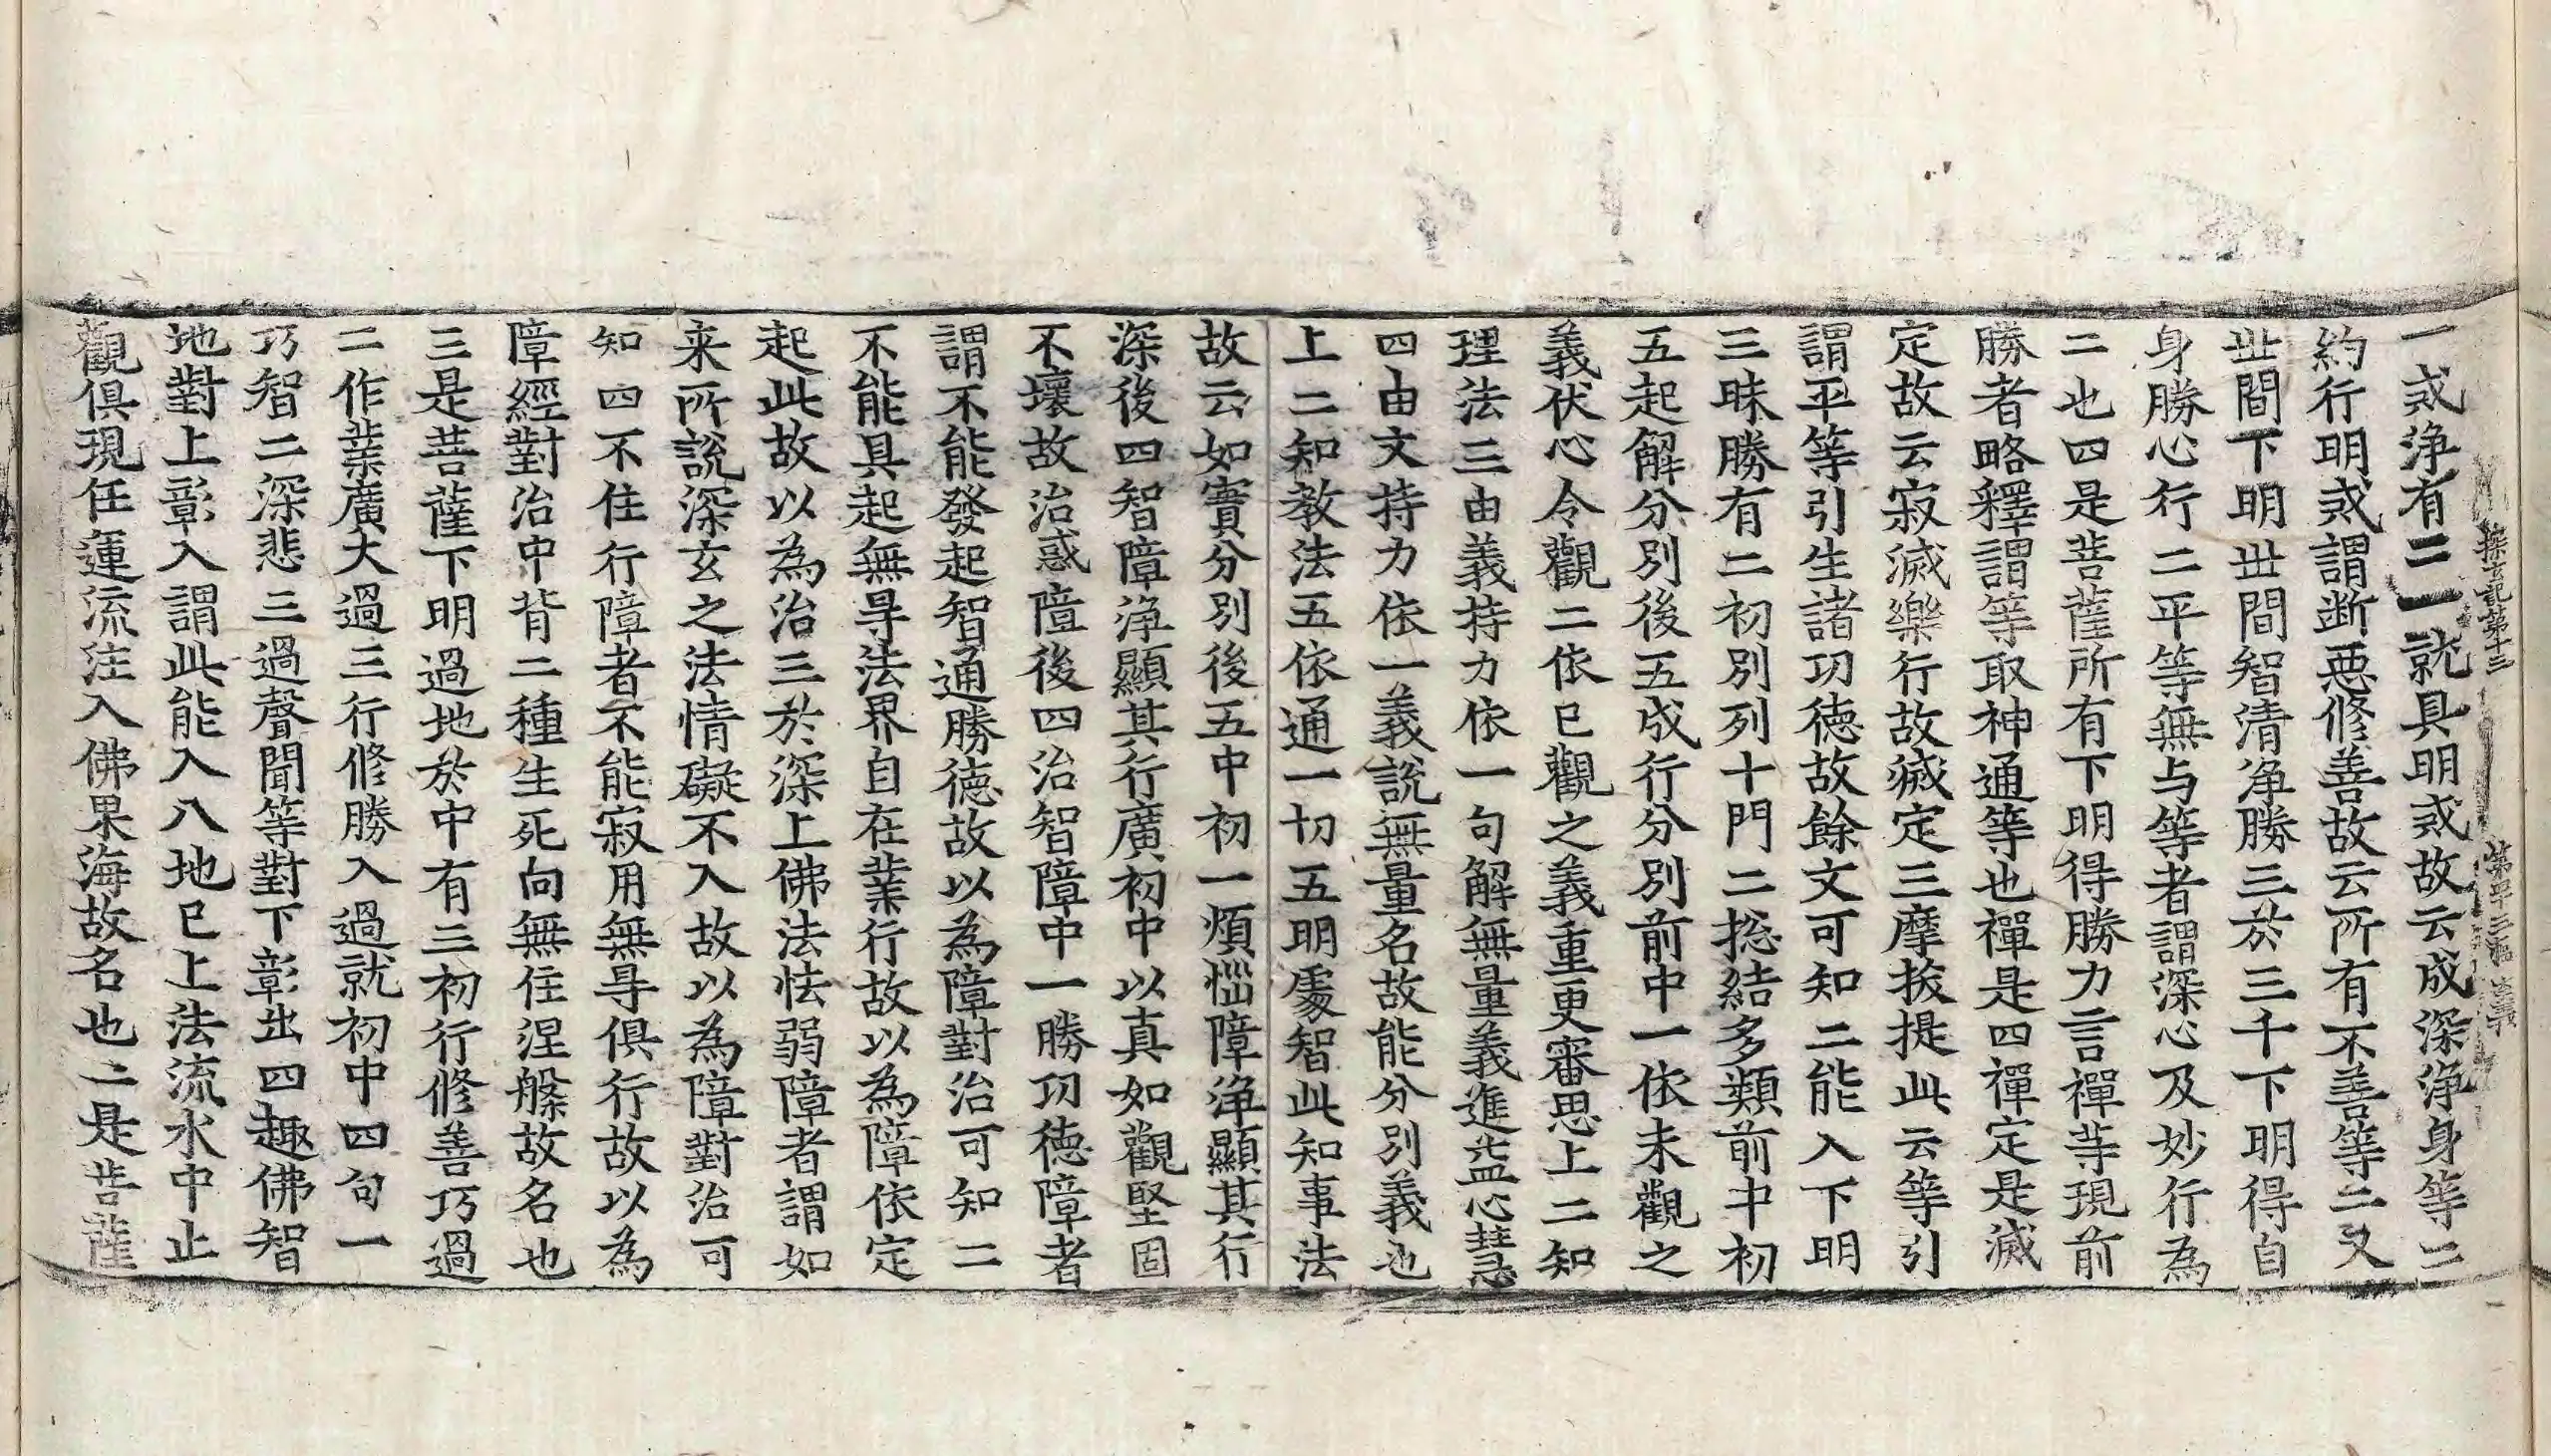 探玄記第十三　第四十三張　義
一或淨有二一就具明或故云成深淨身等二
約行明或謂断惡修善故云所有不善等二又
世間下明世間智清淨勝三於三千下明得自
身勝心行二平等無与等者謂深心及妙行為
二也四是菩薩所有下明得勝力言禪等現前
勝者略釋謂等取神通等也禪是四禪定是滅
定故云寂滅樂行故滅定三摩拔提此云等引
謂平等引生諸功德故餘文可知二能入下明
三昧勝有二初別列十門二捴結多類前中初
五起解分別後五成行分別前中一依未觀之
義伏心令觀二依已觀之義重更審思上二知
理法三由義持力依一句解無量義進益心慧
四由文持力依一義說無量名故能分別義也
上二知教法五依通一切五明處智此知事法
故云如實分別後五中初一煩惱障淨顯其行
深後四智障淨顯其行廣初中以真如觀堅固
不壞故治惑障後四治智障中一勝功德障者
謂不能發起智通勝德故以為障對治可知二
不能具起無㝵法界自在業行故以為障依定
起此故以為治三於深上佛法怯弱障者謂如
来所說深玄之法情礙不入故以為障對治可
知四不住行障者不能寂用無㝵俱行故以為
障經對治中背二種生死向無住涅槃故名也
三是菩薩下明過地於中有三初行修善巧過
二作業廣大過三行修勝入過就初中四句一
巧智二深悲三過聲聞等對下彰出四趣佛智
地對上彰入謂此能入八地已上法流水中止
觀俱現任運流注入佛果海故名也二是菩薩